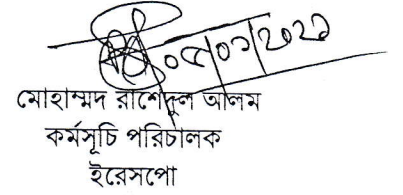 ০৫/০১/২০২১
মোহাম্মদ রাশেদুল আলম
কর্মসূচি পরিচালক
ইরেসপো